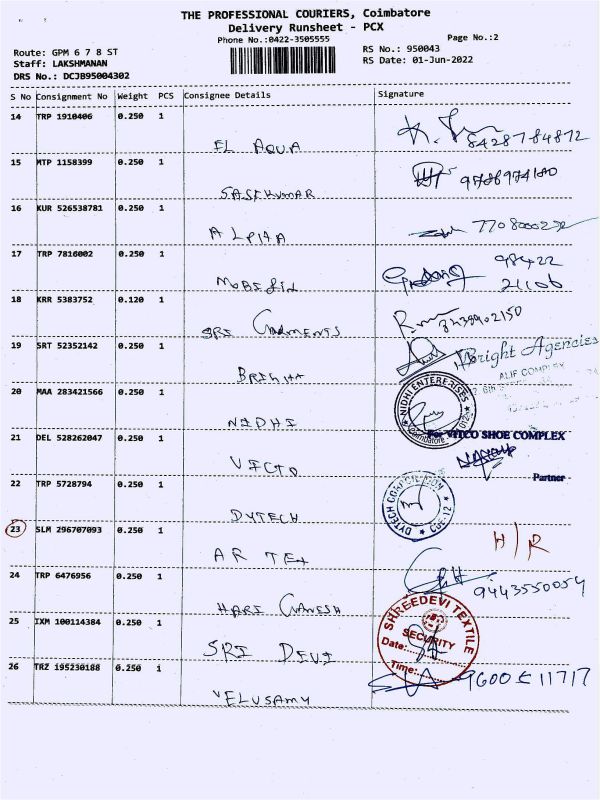 THE PROFESSIONAL COURIERS, Coimbatore
Delivery Runsheet - PCX
Phone No.:0422-3505555
Page No.:2
Route: GPM 6 7 8 ST
RS No.: 950043
Staff: LAKSHMANAN
RS Date: 01-Jun-2022
DRS No.: DCJB95004302
S No Consignment No Weight PCS Consignee Details Signature
14 TRP 1910406 0.250 1
EL AQUA 8428784872
15 MTP 1158399 0.250 1
SASIKUMAR
16 KUR 526538781 0.250 1
ALPHA
17 TRP 7816002 0.250 1 98422
MOBIFIL 21106
18 KRR 5383752 0.120 1
SRI GARMENTS
19 SRT 52352142 0.250 1 Bright Agencies
BRIGHT ALIF COMPLEX
20 MAA 283421566 0.250 1 NIDHI ENTERPRISES
NIDHI Coimbatore
21 DEL 528262047 0.250 1 For VITCO SHOE COMPLEX
VITCO Partner
22 TRP 5728794 0.250 1 DYTECH
DYTECH CBE-12
23 SLM 296707093 0.250 1 H/R
AR TEX
24 TRP 6476956 0.250 1 9443550054
HARI GANESH
25 IXM 100114384 0.250 1 SHREEDEVI TEXTILE
SECURITY
SRI DEVI Date:
Time:
26 TRZ 195230188 0.250 1
VELUSAMY